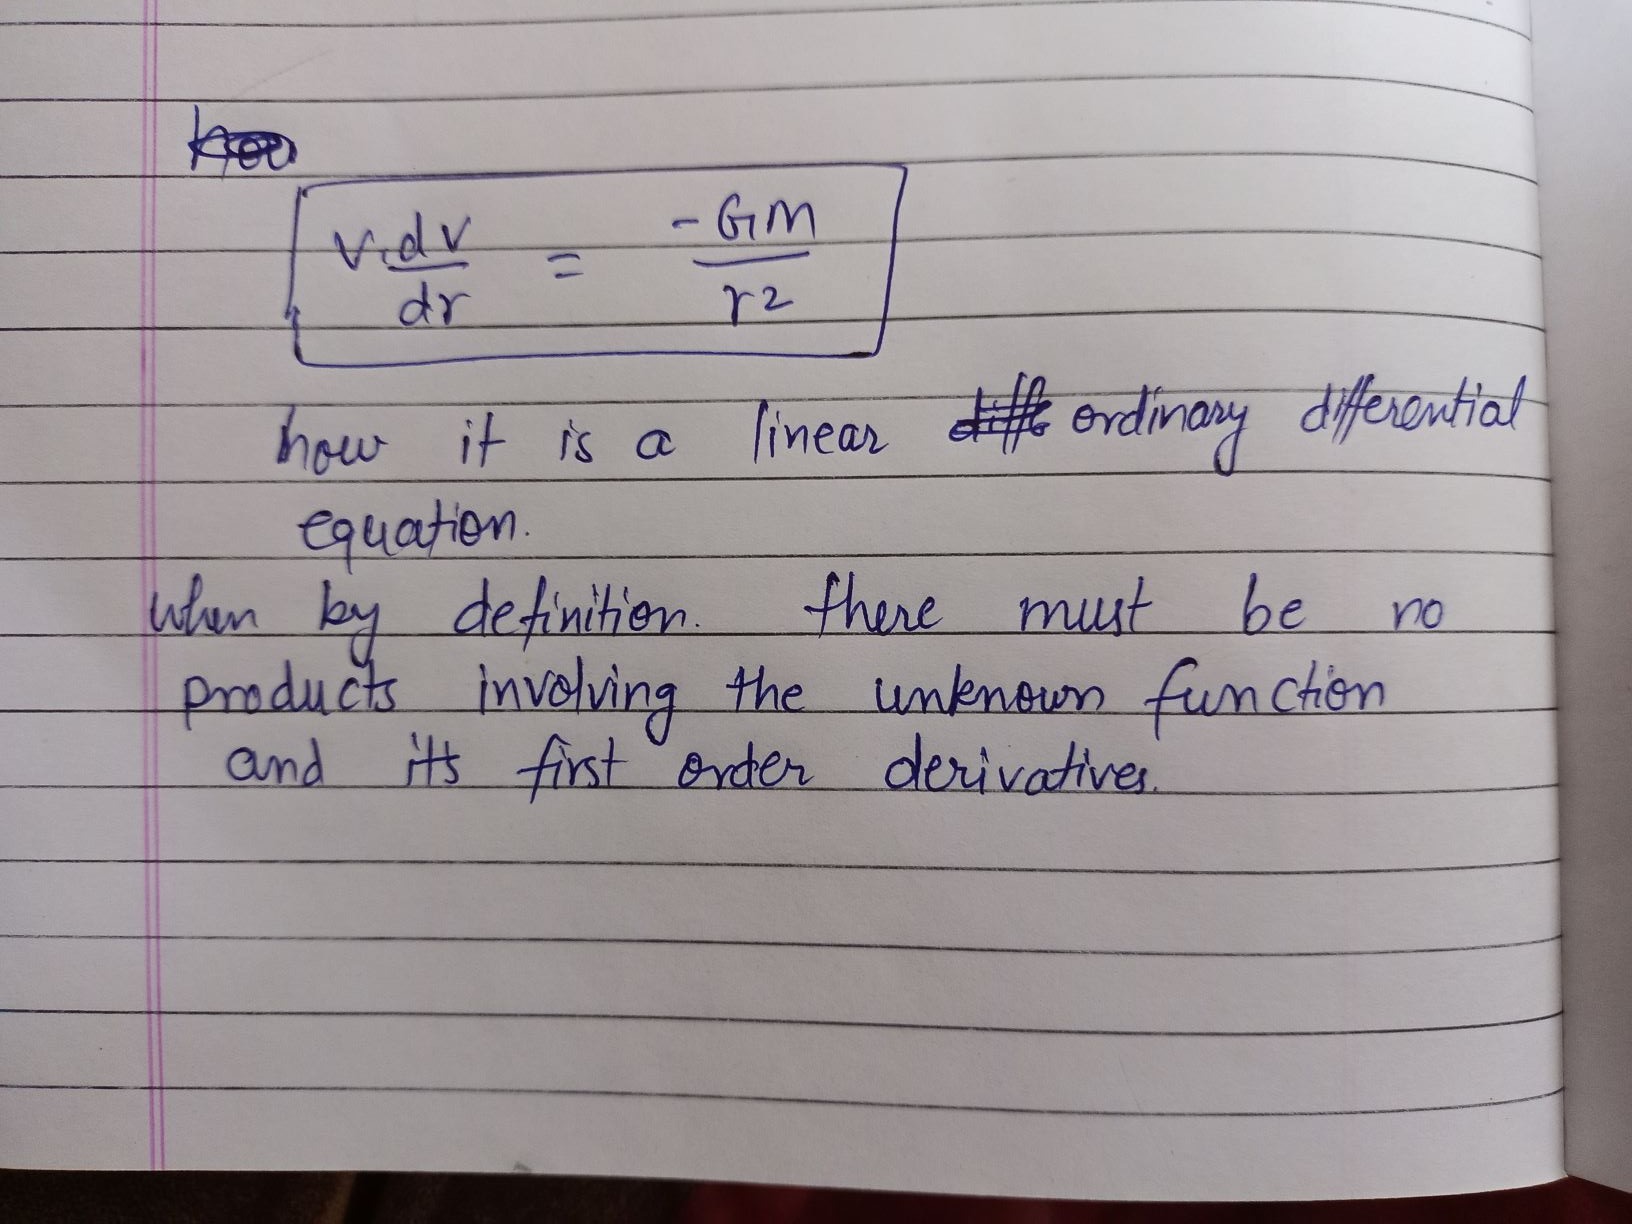 v.dv/dr = -GM/r2
how it is a linear ordinary differential
equation.
when by definition. there must be no
products involving the unknown function
and it's first order derivatives.